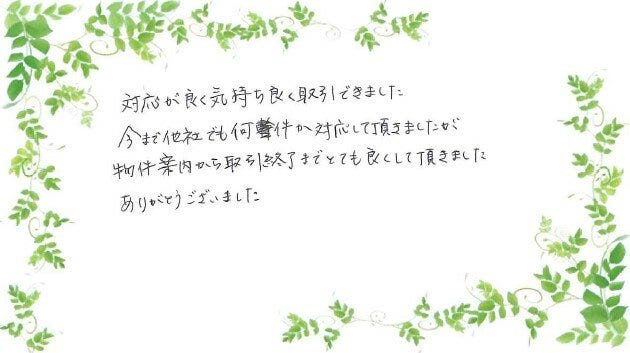 対応が良く気持ち良く取引できました
今まで他社でも何件か対応して頂きましたが
物件案内から取引終了までとても良くして頂きました
ありがとうございました